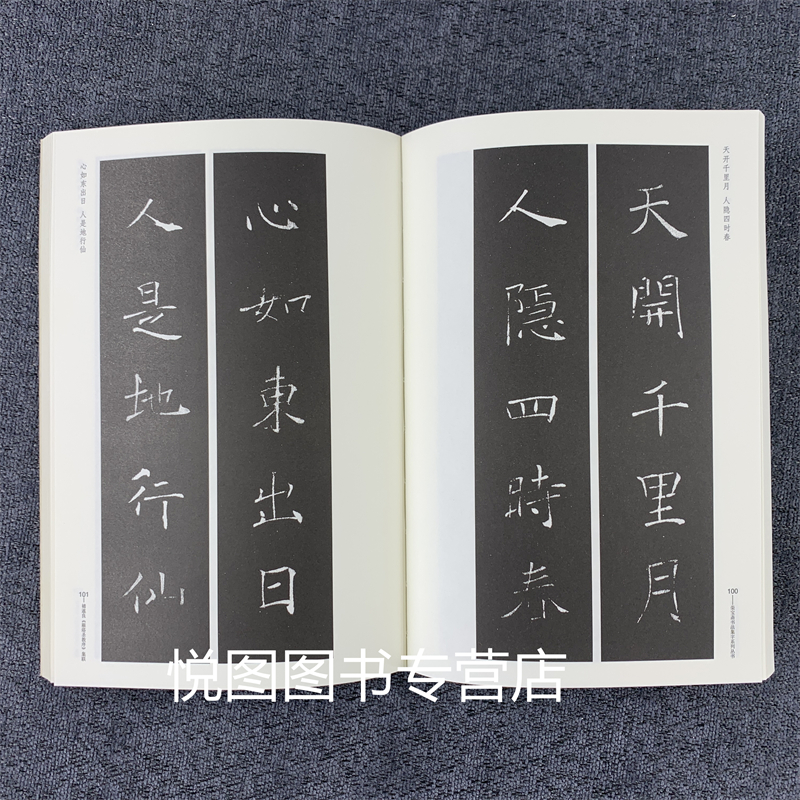 天开千里月 人隐四时春
天開千里月
人隱四時春
100
心如東出日
人是地行仙
心如东出日 人是地行仙
101——褚遂良《雁塔圣教序》集联
悦图图书专营店